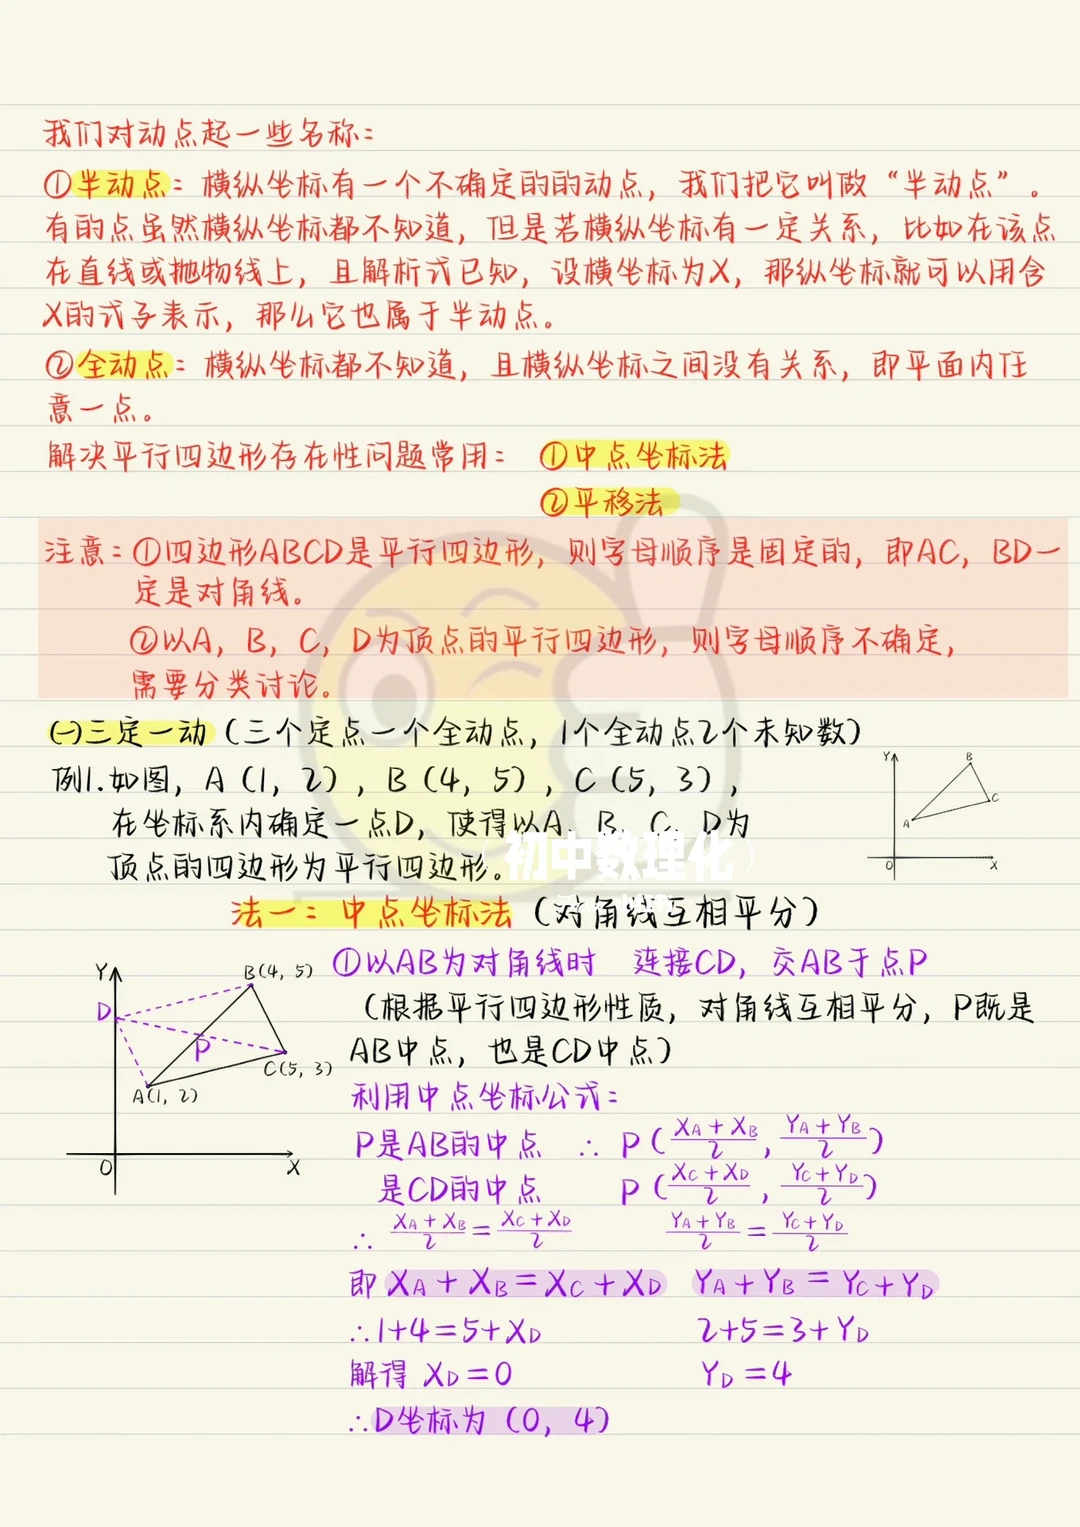 我们对动点起一些名称：
①半动点：横纵坐标有一个不确定的的动点，我们把它叫做“半动点”。
有的点虽然横纵坐标都不知道，但是若横纵坐标有一定关系，比如在该点
在直线或抛物线上，且解析式已知，设横坐标为X，那纵坐标就可以用含
X的式子表示，那么它也属于半动点。
②全动点：横纵坐标都不知道，且横纵坐标之间没有关系，即平面内任
意一点。
解决平行四边形存在性问题常用：①中点坐标法
②平移法
注意：①四边形ABCD是平行四边形，则字母顺序是固定的，即AC，BD一
定是对角线。
②以A，B，C，D为顶点的平行四边形，则字母顺序不确定，
需要分类讨论。
㈠三定一动（三个定点一个全动点，1个全动点2个未知数）
例1.如图，A（1，2），B（4，5），C（5，3），
在坐标系内确定一点D，使得以A、B、C、D为
顶点的四边形为平行四边形。
Y B C A O X
初中数理化
法一：中点坐标法（对角线互相平分）
Y B(4，5) D P C(5，3) A(1，2) O X
①以AB为对角线时 连接CD，交AB于点P
（根据平行四边形性质，对角线互相平分，P既是
AB中点，也是CD中点）
利用中点坐标公式：
P是AB的中点 ∴ P（(XA+XB)/2，(YA+YB)/2）
是CD的中点 P（(XC+XD)/2，(YC+YD)/2）
∴ (XA+XB)/2=(XC+XD)/2 (YA+YB)/2=(YC+YD)/2
即 XA+XB=XC+XD YA+YB=YC+YD
∴1+4=5+XD 2+5=3+YD
解得 XD=0 YD=4
∴D坐标为（0，4）